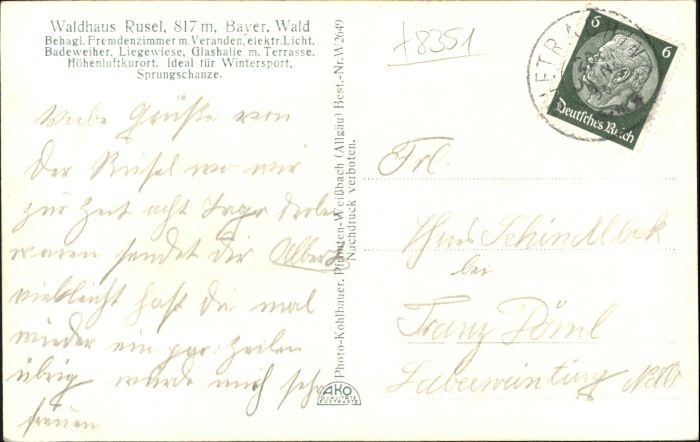 Waldhaus Rusel, 817 m, Bayer. Wald
Behagl. Fremdenzimmer m. Veranden, elektr. Licht.
Badeweiher. Liegewiese, Glashalle m. Terrasse.
Höhenluftkurort. Ideal für Wintersport,
Sprungschanze.
Grüße von
der Rusel wo wir
zur Zeit acht Tage
waren sendet dir Albert
vielleicht hast du mal
wieder ein par Zeilen
übrig würde mich sehr
freuen
Photo-Kohlbauer, Pfronten-Weißbach (Allgäu) Best.-Nr. W 2649
Nachdruck verboten.
AKO
QUALITÄTS
POSTKARTE
+8351
6 6
Deutsches Reich
Frl.
Schindlbek
bei
Franz
Laberweinting